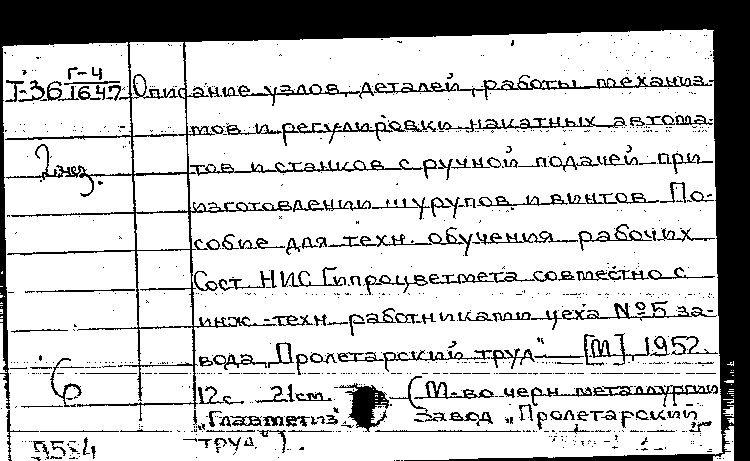 Г-4
Т-36 1647 Описание узлов, деталей, работы механиз-
мов и регулировки накатных автома-
2 экз. тов и станков с ручной подачей при
изготовлении шурупов и винтов. По-
собие для техн. обучения рабочих
Сост. НИС Гипроцветмета совместно с
инж.-техн. работниками цеха №5 за-
вода „Пролетарский труд“ [М], 1952.
6 12с. 21см. (М-во черн. металлургии
„Главметиз“ Завод „Пролетарский
труд“).